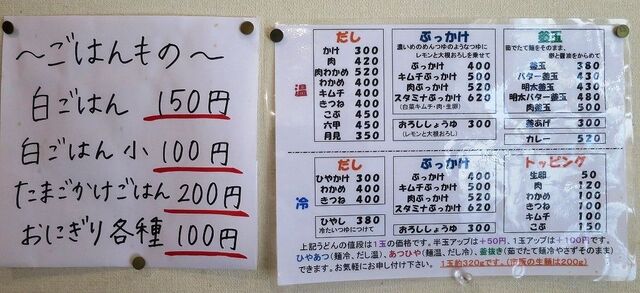 ～ごはんもの～
白ごはん 150円
白ごはん 小 100円
たまごかけごはん 200円
おにぎり各種 100円
温
だし
かけ 300
肉 420
肉わかめ 520
わかめ 400
キムチ 400
きつね 400
こぶ 450
六甲 450
月見 350
ぶっかけ
濃いめのめんつゆのようなつゆに
レモンと大根おろしを乗せて
ぶっかけ 400
キムチぶっかけ 500
肉ぶっかけ 520
スタミナぶっかけ 620
(白菜キムチ・肉・生卵)
おろししょうゆ 300
(レモンと大根おろし)
釜玉
茹でたて麺をそのまま、
卵と醤油をからめて
釜玉 380
バター釜玉 430
明太釜玉 430
明太バター釜玉 480
肉釜玉 500
釜あげ 300
カレー 520
冷
だし
ひやかけ 300
わかめ 400
きつね 400
ひやし 380
冷たいつゆにつけて
ぶっかけ
ぶっかけ 400
キムチぶっかけ 500
肉ぶっかけ 520
スタミナぶっかけ 620
おろししょうゆ 300
トッピング
生卵 50
肉 120
わかめ 100
きつね 100
キムチ 100
こぶ 150
上記うどんの値段は1玉の価格です。半玉アップは+50円、1玉アップは+100円です。
ひやあつ(麺冷、だし温)、あつひや(麺温、だし冷)、釜抜き(茹でたて麺で冷やさずそのまま)
できます。お気軽にお申し付け下さい。 1玉約320gです。(市販の生麺は200g)